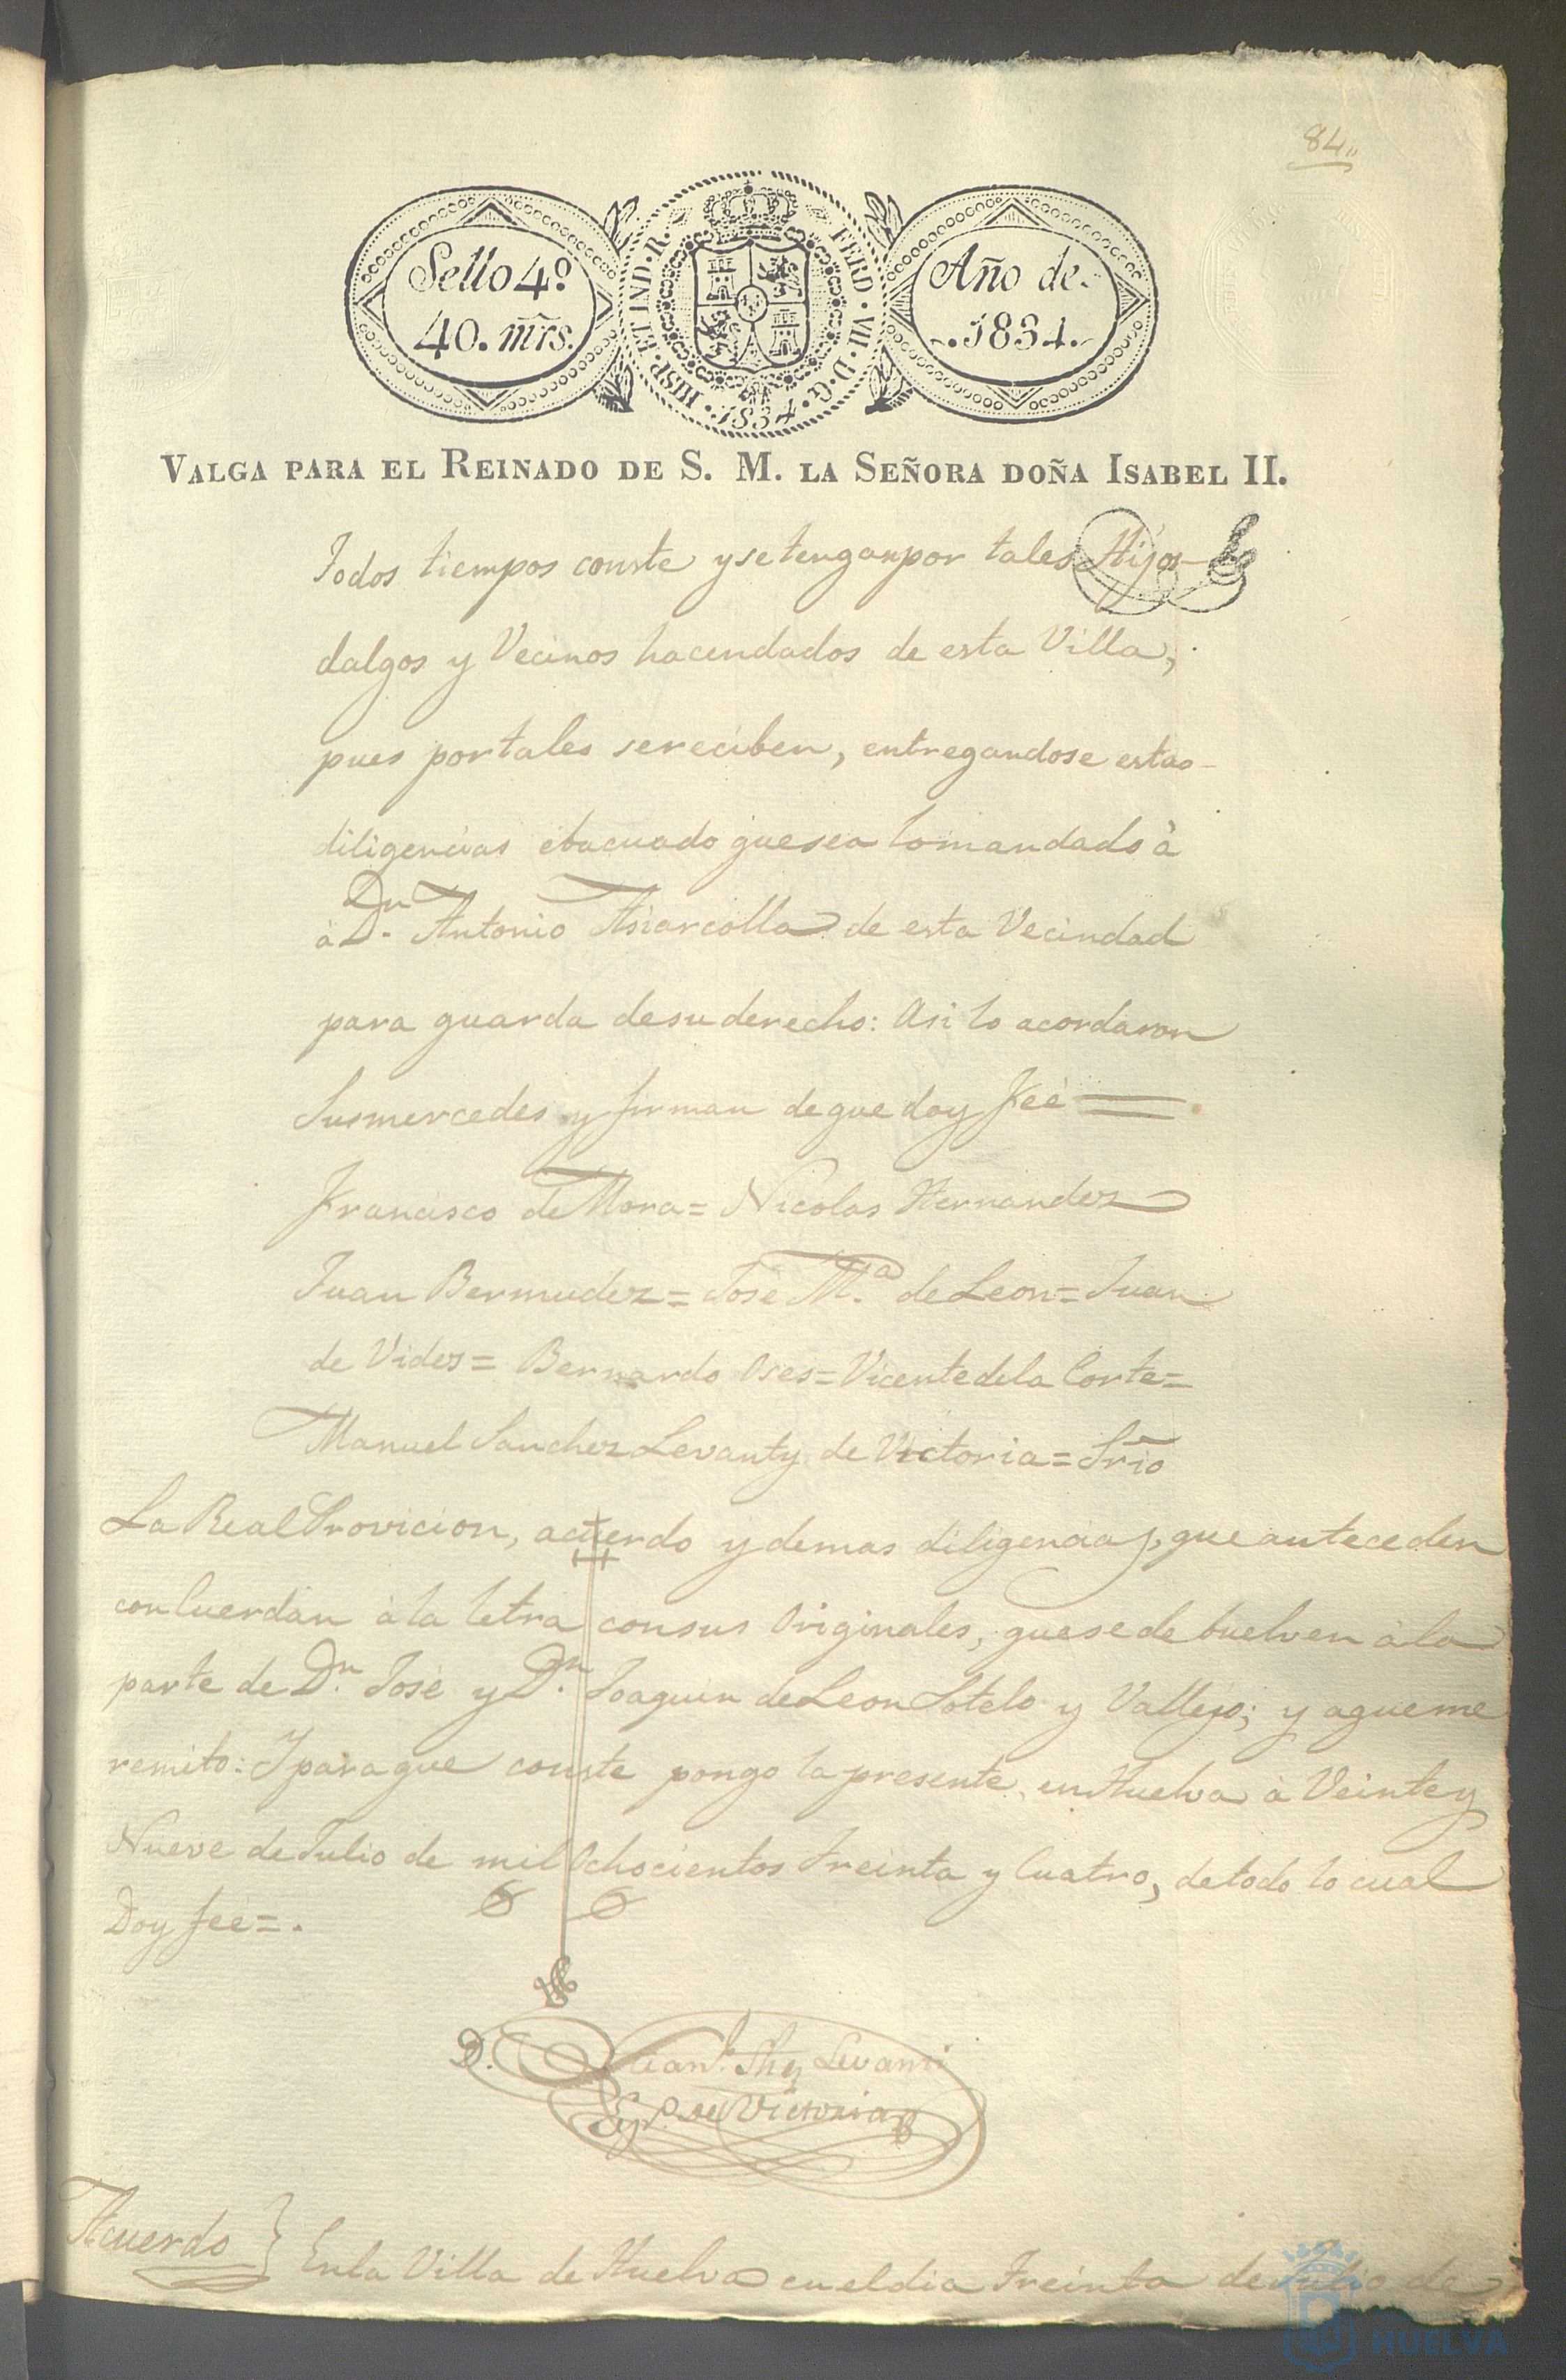 84
Sello 4º
40. mrs.
HISP. ET IND. R.
FERD. VII. D. G.
1834
Año de
1834.
VALGA PARA EL REINADO DE S. M. LA SEÑORA DOÑA ISABEL II.
Todos tiempos conste y se tengan por tales Hijos-
dalgos y Vecinos hacendados de esta Villa,
pues por tales se reciben, entregandose estas
diligencias ebacuado que sea lo mandado à
à Dn. Antonio de esta Vecindad
para guarda de su derecho: Asi lo acordaron
Sus mercedes y firman de que doy Feé =
Francisco de Mora = Nicolas Hernandez
Juan Bermudez = José M.ª de Leon = Juan
de Vides = Bernardo Oses = Vicente de la Corte =
Manuel Sanchez Levanty de Victoria = Srio
La Real Provicion, acuerdo y demas diligencias, que anteceden
concuerdan à la letra con sus Originales, que se debuelven à la
parte de Dn. José y Dn. Joaquin de Leon Sotelo y Vallejo; y a que me
remito: Y para que conste pongo la presente en Huelva à Veinte y
Nueve de Julio de mil Ochocientos Treinta y Cuatro, de todo lo cual
Doy feé =.
Man.l Shez Levanti
de Victoria
Acuerdo } En la Villa de Huelva en el dia Treinta de Julio de
HUELVA